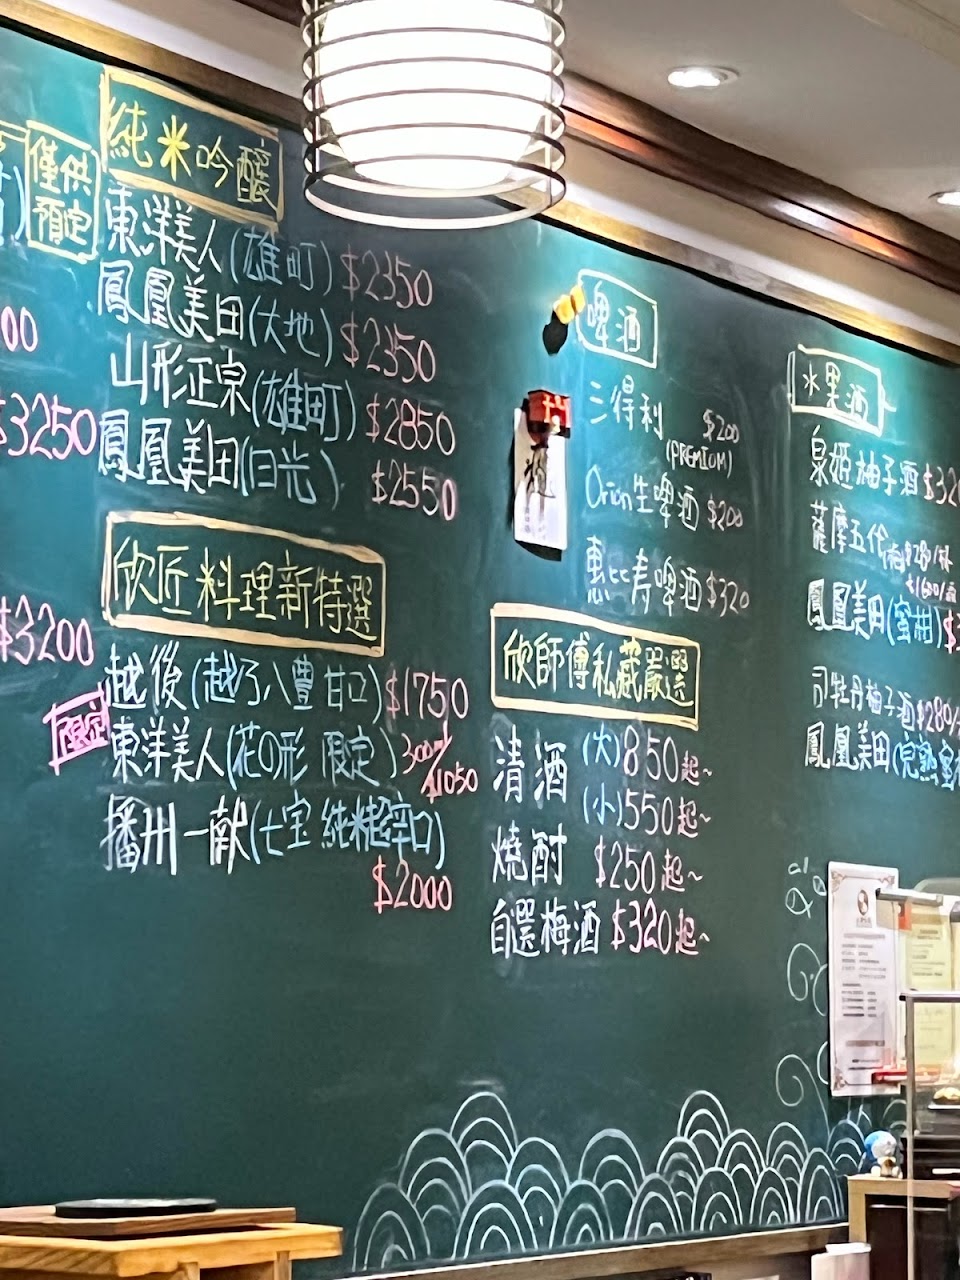 僅供
預定
00
$3250
$3200
純米吟釀
東洋美人(雄町) $2350
鳳凰美田(大地) $2350
山形正宗(雄町) $2850
鳳凰美田(日光) $2550
欣匠料理新特選
越後(越乃八豊甘口) $1750
限定
東洋美人(花の形 限定) 300ml $1050
播州一献(七宝 純米超辛口)
$2000
啤酒
三得利 $200
(PREMIUM)
Orion生啤酒 $200
惠比寿啤酒 $320
欣師傅私藏嚴選
清酒 (大)850起~
(小)550起~
燒酎 $250起~
自選梅酒 $320起~
水果酒
泉姫柚子酒 $320
薩摩五代 $280/杯
$1600/
鳳凰美田(蜜柑) $
司牡丹柚子酒 $280/
鳳凰美田(完熟蜜